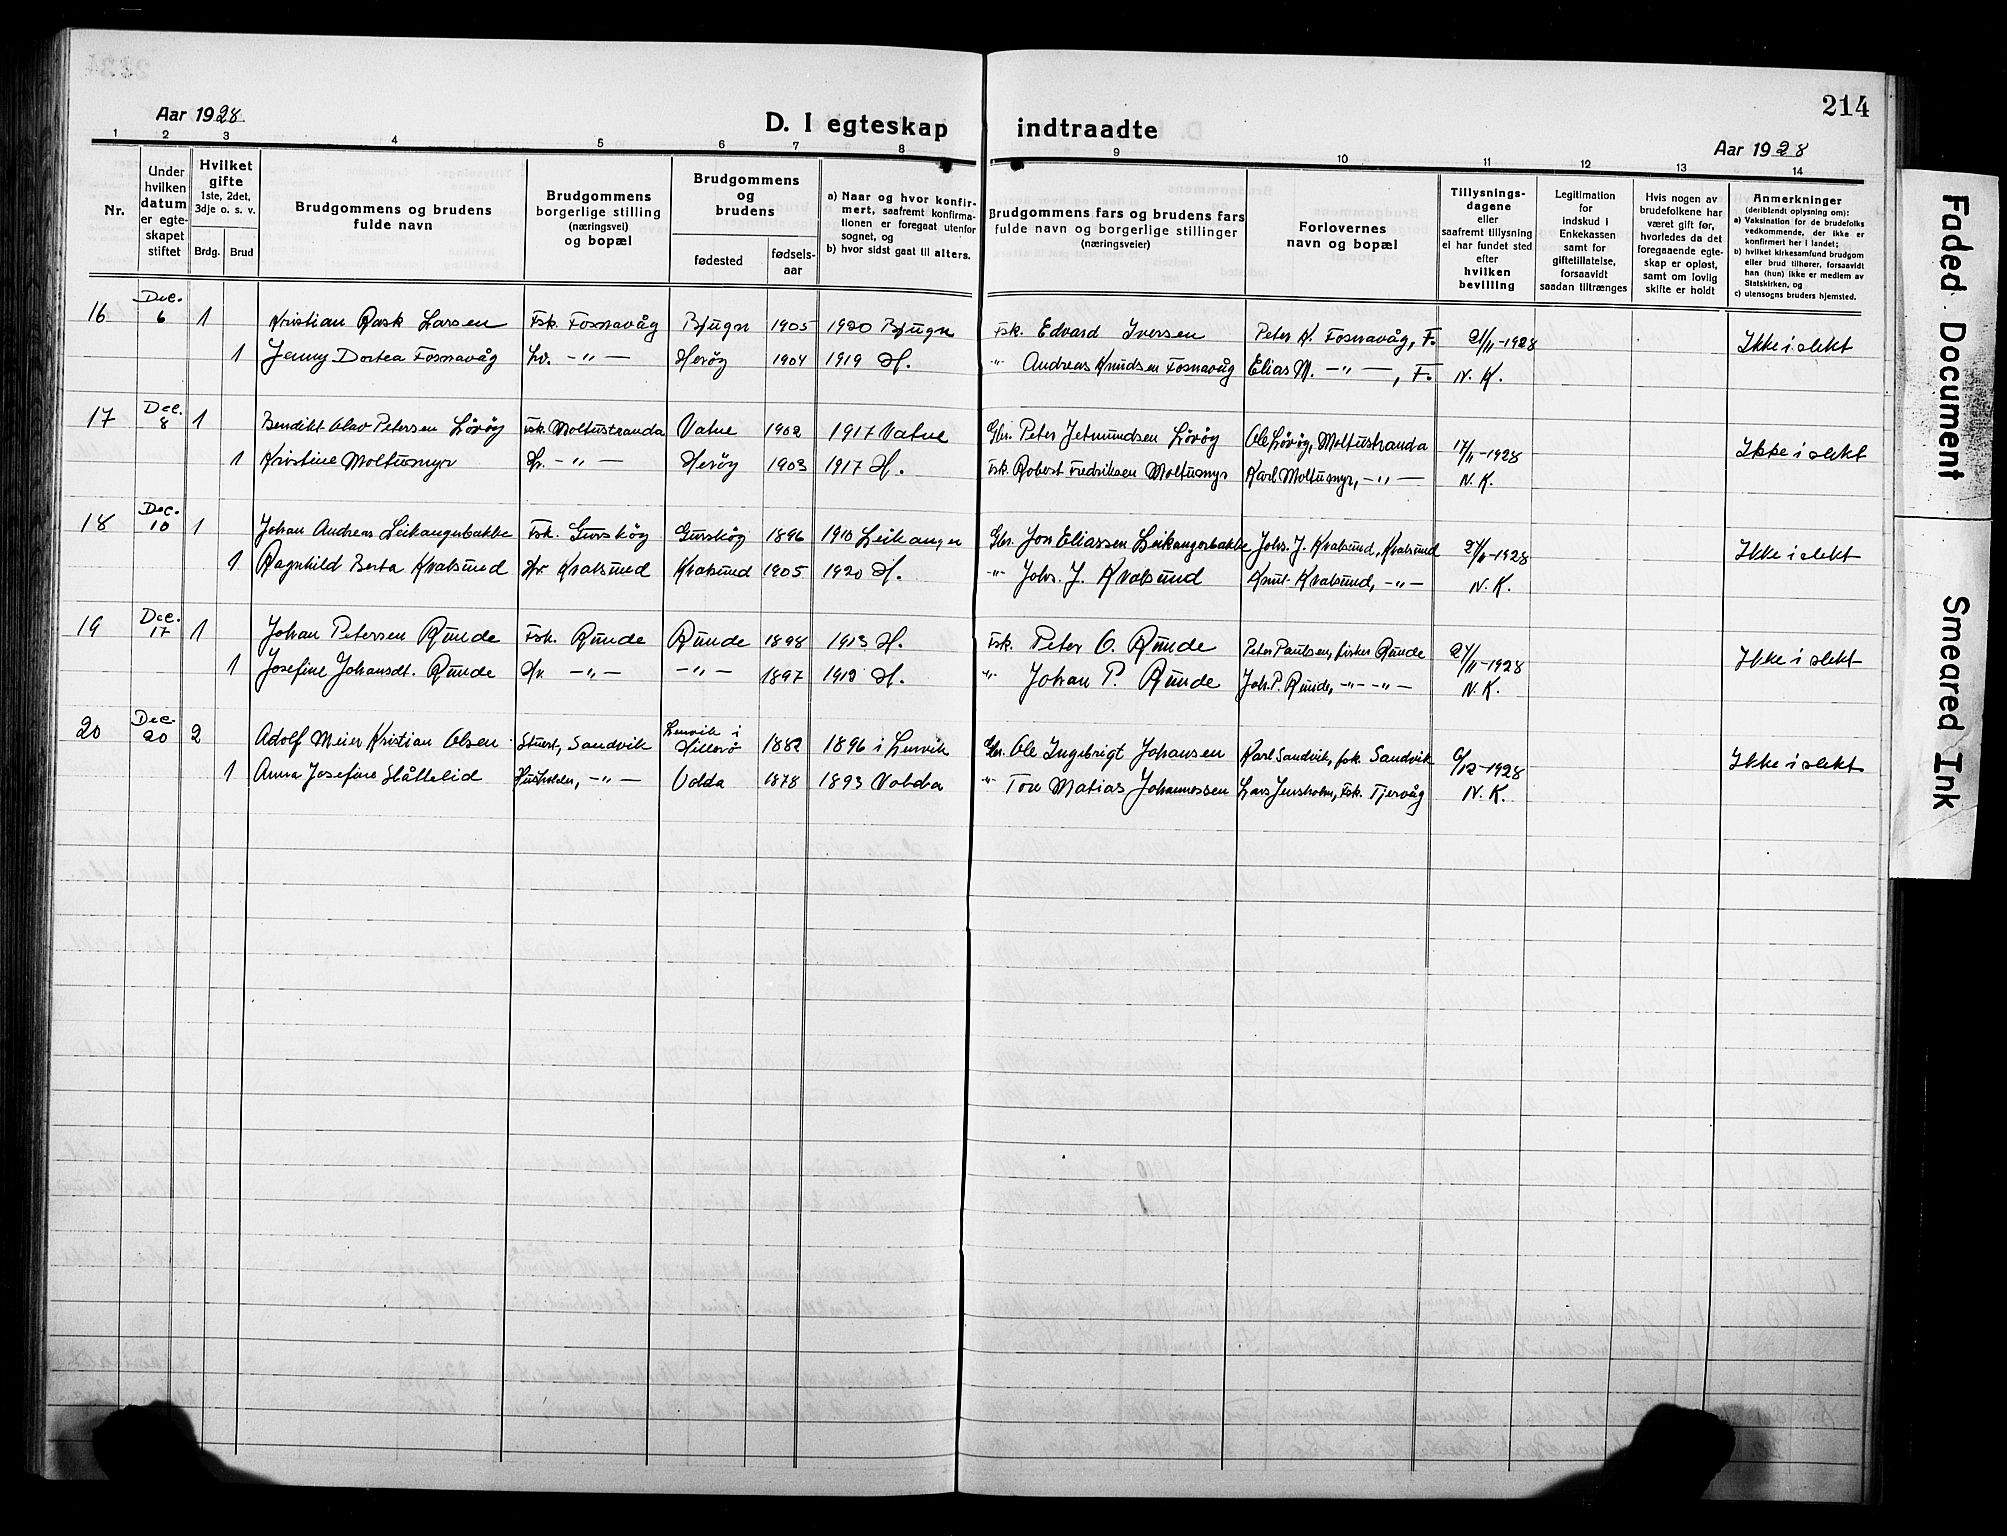 214
Aar 1928
D. I egteskap indtraadte
Aar 1928
1 2 3 4 5 6 7 8 9 10 11 12 13 14
Nr.
Under hvilken datum er egteskapet stiftet
Hvilket gifte 1ste, 2det, 3dje o. s. v.
Brdg. Brud
Brudgommens og brudens fulde navn
Brudgommens borgerlige stilling (næringsvei) og bopæl
Brudgommens og brudens
fødested fødselsaar
a) Naar og hvor konfirmert, saafremt konfirmationen er foregaat utenfor sognet, og
b) hvor sidst gaat til alters.
Brudgommens fars og brudens fars fulde navn og borgerlige stillinger (næringsveier)
Forlovernes navn og bopæl
Tillysningsdagene eller saafremt tillysning ei har fundet sted efter hvilken bevilling
Legitimation for indskud i Enkekassen samt for giftetillatelse, forsaavidt saadan tiltrænges
Hvis nogen av brudefolkene har været gift før, hvorledes da det foregaaende egteskap er opløst, samt om lovlig skifte er holdt
Anmerkninger (deriblendt oplysning om):
a) Vaksination for de brudefolks vedkommende, der ikke er konfirmert her i landet;
b) hvilket kirkesamfund brudgom eller brud tilhører, forsaavidt han (hun) ikke er medlem av Statskirken, og
c) utensogns bruders hjemsted.
16 Dec. 6 1 Kristian Rask Larsen Fsk. Fosnavåg Bjugn 1905 1920 Bjugn Fsk. Edvard Iversen Peter K. Fosnavåg, F. 21/11-1928 Ikke i slekt
1 Jenny Dortea Fosnavåg Hv. -"- Herøy 1904 1919 H. " Andreas Knudsen Fosnavåg Elias M. -"-, F. N. K.
17 Dec. 8 1 Bendikt Olav Petersen Løvøy Fsk. Moltustranda Vatne 1902 1917 Vatne Gbr. Peter Jetmundsen Løvøy Ole Løvøy, Moltustranda 17/11-1928 Ikke i slekt
1 Kristine Moltumyr Hv. -"- Herøy 1903 1917 H. Fsk. Robert Fredriksen Moltumyr Karl Moltumyr, -"- N. K.
18 Dec. 10 1 Johan Andreas Leikangerbakke Fsk. Gurskøy Gurskøy 1896 1910 Leikanger Gbr. Jon Eliassen Leikangerbakke Johs. J. Kvalsund, Kvalsund 27/11-1928 Ikke i slekt
1 Ragnhild Berta Kvalsund Hv Kvalsund Kvalsund 1905 1920 H. " Johs. J. Kvalsund Knut Kvalsund, -"- N. K.
19 Dec. 17 1 Johan Petersen Runde Fsk. Runde Runde 1898 1913 H. Fsk. Peter O. Runde Peter Paulsen, fisker Runde 27/11-1928 Ikke i slekt
1 Josefine Johansdt. Runde Hv. -"- -"- 1897 1912 H. " Johan P. Runde Joh. P. Runde, -"-"- N. K.
20 Dec. 20 2 Adolf Meier Kristian Olsen Stuert, Sandvik Lenvik i Hillesø 1882 1896 i Lenvik Gbr. Ole Ingebrigt Johansen Karl Sandvik, fsk. Sandvik 6/12-1928 Ikke i slekt
1 Anna Josefine Slåttelid Husholder, -"- Volda 1878 1893 Volda " Tore Matias Johannessen Lars Jensholm, Fsk. Tjervåg N. K.
Faded Document
Smeared Ink